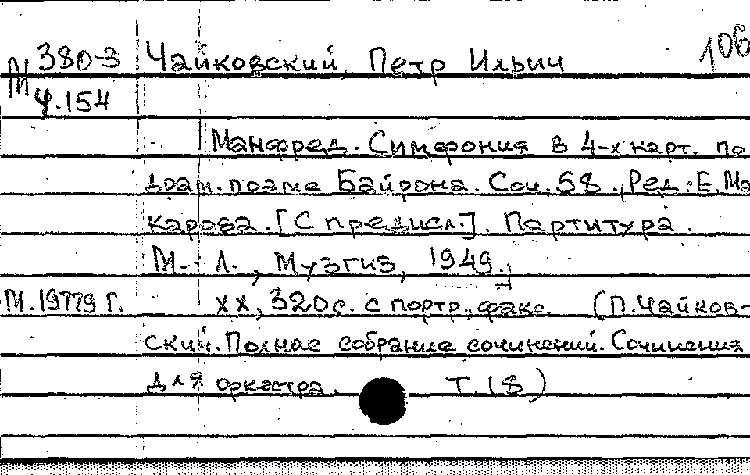 М 380-3 Чайковский, Петр Ильич 106
Ч.154
Манфред. Симфония в 4-х карт. по
драм. поэме Байрона. Соч. 58., Ред: Е. Ма
карова. [С предисл.]. Партитура.
М.- Л., Музгиз, 1949.
М.19779 г. XX, 320с. с портр., факс. (П. Чайков-
ский. Полное собрание сочинений. Сочинения
для оркестра. Т. (8)